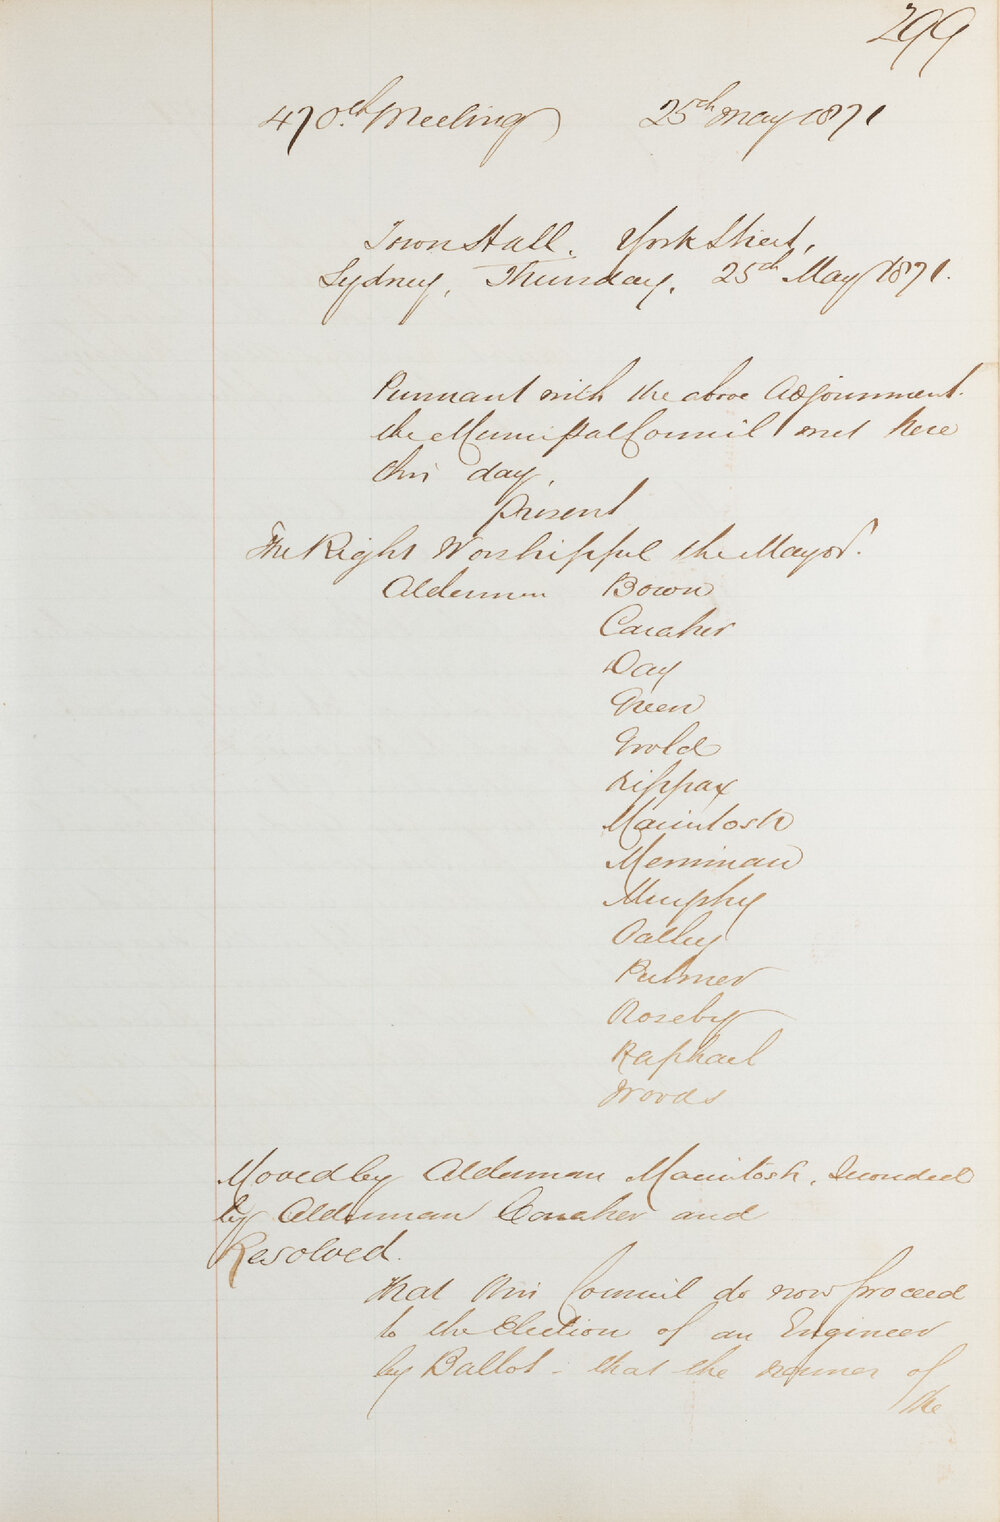 299
470.th Meeting 25th May 1871
Town Hall. York Street,
Sydney, Thursday, 25th May 1871.
Pursuant with the above Adjournment.
the Municipal Council met here
this day,
Present
The Right Worshipful the Mayor.
Aldermen Bown
Caraher
Day
Green
Kippax
Macintosh
Merriman
Murphy
Oatley
Palmer
Roseby
Raphael
Woods
Moved by Alderman Macintosh, Seconded
by Alderman Caraher and
Resolved.
that this Council do now proceed
to the Election of an Engineer
by Ballot - that the names of
the